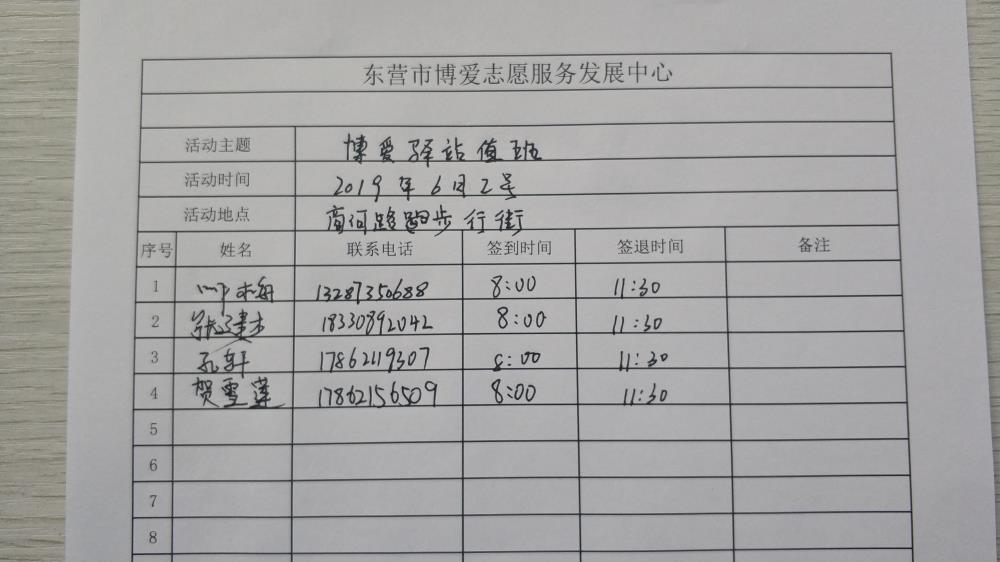 东营市博爱志愿服务发展中心
活动主题 博爱驿站值班
活动时间 2019年6月2号
活动地点 商河路跑步行街
序号 姓名 联系电话 签到时间 签退时间 备注
1 13287350688 8:00 11:30
2 18330892042 8:00 11:30
3 孔轩 17862119307 8:00 11:30
4 贺雪莲 17862156509 8:00 11:30
5
6
7
8